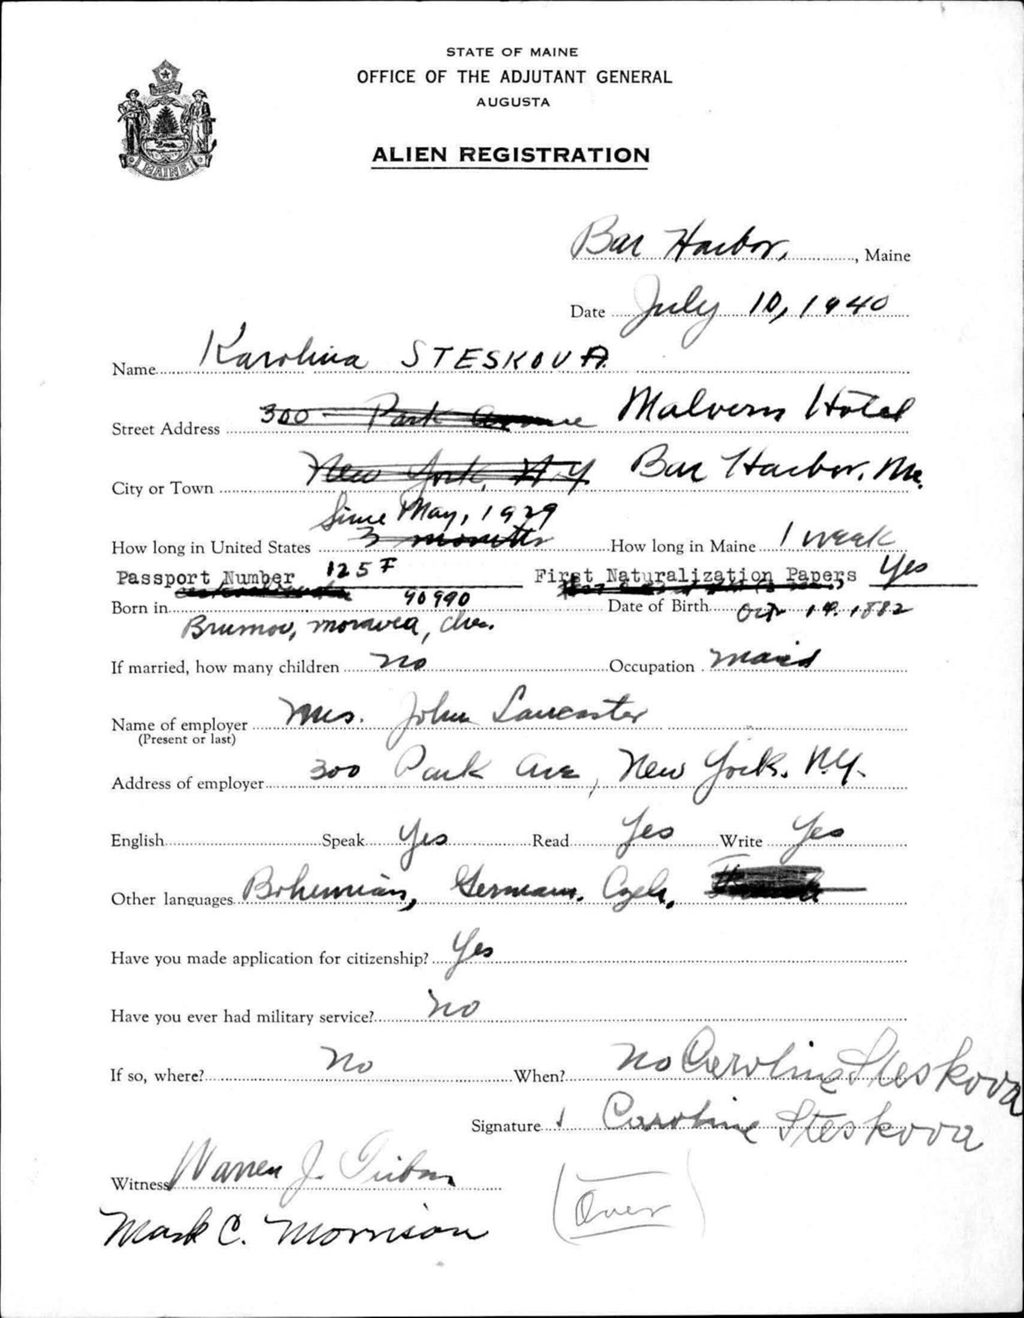 STATE OF MAINE
OFFICE OF THE ADJUTANT GENERAL
AUGUSTA
ALIEN REGISTRATION
MAINE
Bar Harbor, , Maine
Date July 10, 1940
Name Karolina STESKOVA
Street Address 300 - Park Avenue Malvern Hotel
City or Town New York, N.Y. Bar Harbor, Me.
Since May, 1929
How long in United States 3 months How long in Maine 1 week
Passport Number 125 F First Naturalization Papers Yes
Born in 90990 Date of Birth Oct 19. 1882
Brumov, Moravia,
If married, how many children No Occupation Maid
Name of employer Mrs. John Lancaster
(Present or last)
Address of employer 300 Park Ave, New York. N.Y.
English Speak Yes Read Yes Write Yes
Other languages Bohemian, German. Czek,
Have you made application for citizenship? Yes
Have you ever had military service? No
If so, where? No When? No Caroline Steskova
Signature Caroline Steskova
Witness Warren J.
Mark C. Morrison
(Over)